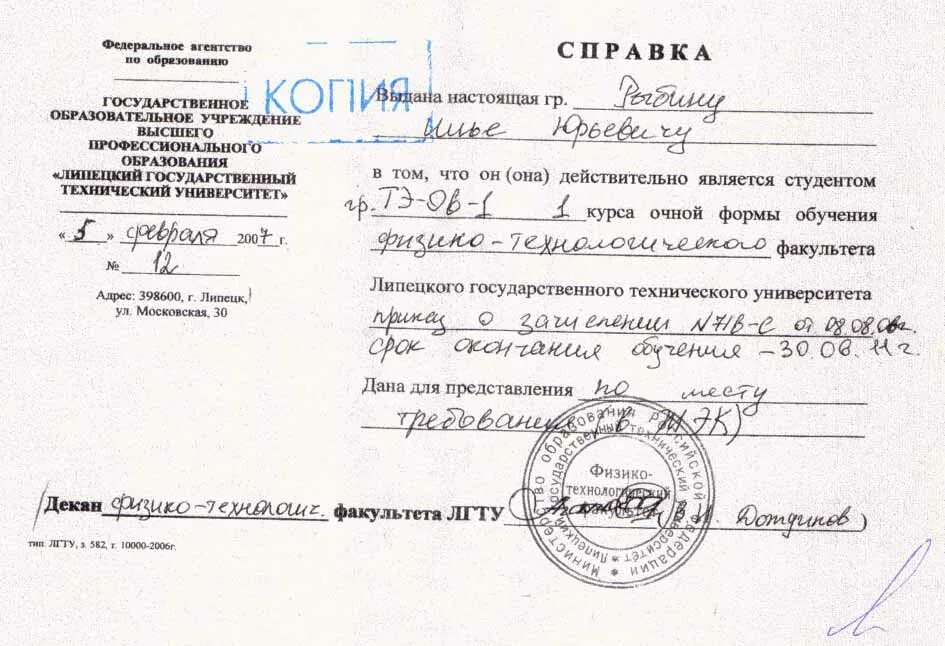 Федеральное агентство
по образованию
КОПИЯ
ГОСУДАРСТВЕННОЕ
ОБРАЗОВАТЕЛЬНОЕ УЧРЕЖДЕНИЕ
ВЫСШЕГО
ПРОФЕССИОНАЛЬНОГО
ОБРАЗОВАНИЯ
«ЛИПЕЦКИЙ ГОСУДАРСТВЕННЫЙ
ТЕХНИЧЕСКИЙ УНИВЕРСИТЕТ»
« 5 » февраля 2007 г.
№ 12
Адрес: 398600, г. Липецк,
ул. Московская, 30
СПРАВКА
Выдана настоящая гр. Рыбину
Илье Юрьевичу
в том, что он (она) действительно является студентом
гр. ТЭ-ОВ-1 1 курса очной формы обучения
физико-технологического факультета
Липецкого государственного технического университета
приказ о зачислении N 71В-С от 08.08.06г.
срок окончания обучения - 30.06.11 г.
Дана для представления по месту
требования (в ТЭК)
Декан физико-технологич. факультета ЛГТУ
Министерство образования Российской Федерации
Липецкий государственный технический университет
Физико-
технологический
факультет
тип. ЛГТУ, з. 582, т. 10000-2006г.